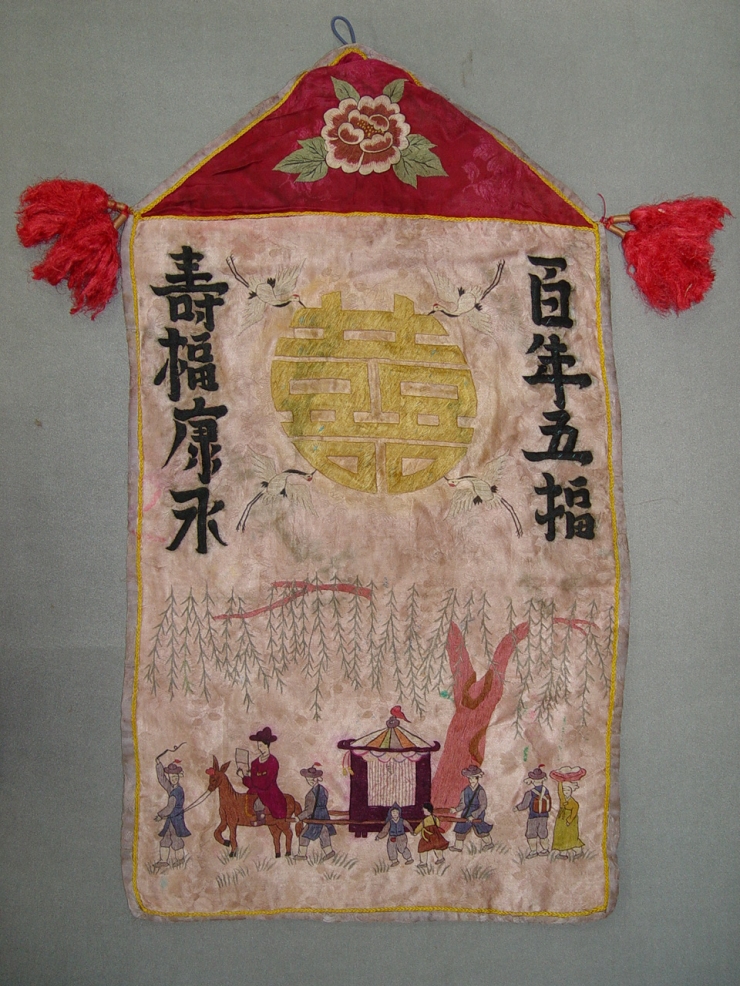 百年五福
囍
壽福康永